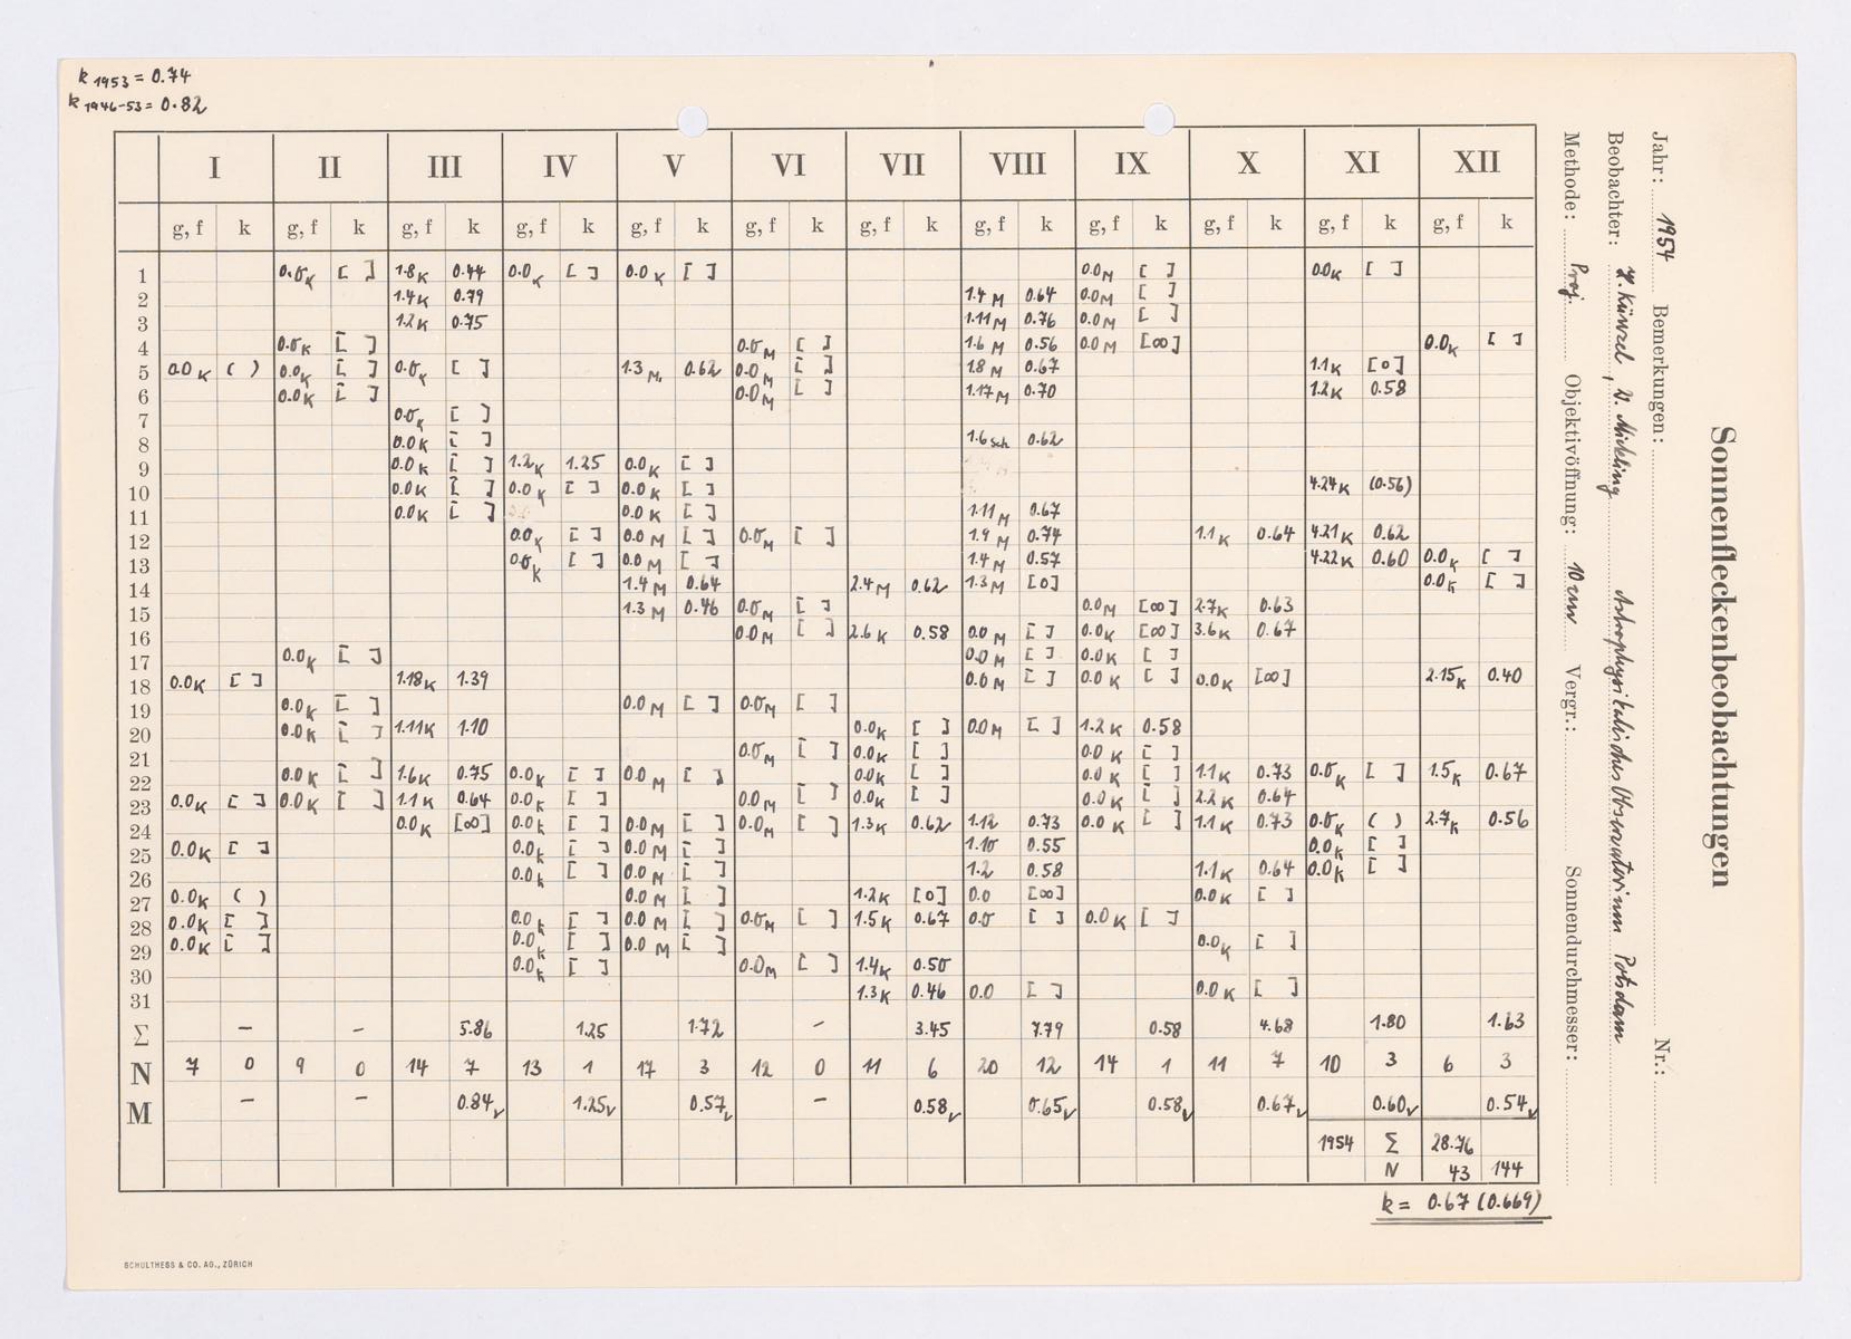 k 1953 = 0.74
k 1946-53 = 0.82
Sonnenfleckenbeobachtungen
Jahr: 1954 Bemerkungen: Nr.:
Beobachter: H. Künzel, Astrophysikalisches Observatorium Potsdam
Methode: Proj. Objektivöffnung: 10 cm Vergr.: Sonnendurchmesser:
I II III IV V VI VII VIII IX X XI XII
g, f k g, f k g, f k g, f k g, f k g, f k g, f k g, f k g, f k g, f k g, f k g, f k
1 0.0K [ ] 1.8K 0.44 0.0K [ ] 0.0K [ ] 0.0M [ ] 0.0K [ ]
2 1.4K 0.79 1.4M 0.64 0.0M [ ]
3 1.2K 0.75 1.11M 0.76 0.0M [ ]
4 0.0K [ ] 0.0M [ ] 1.6M 0.56 0.0M [∞] 0.0K [ ]
5 0.0K ( ) 0.0K [ ] 0.0K [ ] 1.3M 0.62 0.0M [ ] 1.8M 0.67 1.1K [0]
6 0.0K [ ] 0.0M [ ] 1.17M 0.70 1.2K 0.58
7 0.0K [ ]
8 0.0K [ ] 1.6Sch 0.62
9 0.0K [ ] 1.2K 1.25 0.0K [ ]
10 0.0K [ ] 0.0K [ ] 0.0K [ ] 4.24K (0.56)
11 0.0K [ ] 0.0K [ ] 1.11M 0.67
12 0.0K [ ] 0.0M [ ] 0.0M [ ] 1.9M 0.74 1.1K 0.64 4.21K 0.62
13 0.0K [ ] 0.0M [ ] 1.4M 0.57 4.22K 0.60 0.0K [ ]
14 1.4M 0.64 2.4M 0.62 1.3M [0] 0.0K [ ]
15 1.3M 0.46 0.0M [ ] 0.0M [∞] 2.7K 0.63
16 0.0M [ ] 2.6K 0.58 0.0M [ ] 0.0K [∞] 3.6K 0.67
17 0.0K [ ] 0.0M [ ] 0.0K [ ]
18 0.0K [ ] 1.18K 1.39 0.0M [ ] 0.0K [ ] 0.0K [∞] 2.15K 0.40
19 0.0K [ ] 0.0M [ ] 0.0M [ ]
20 0.0K [ ] 1.11K 1.10 0.0K [ ] 0.0M [ ] 1.2K 0.58
21 0.0M [ ] 0.0K [ ] 0.0K [ ]
22 0.0K [ ] 1.6K 0.75 0.0K [ ] 0.0M [ ] 0.0K [ ] 0.0K [ ] 1.1K 0.73 0.0K [ ] 1.5K 0.67
23 0.0K [ ] 0.0K [ ] 1.1K 0.64 0.0K [ ] 0.0M [ ] 0.0K [ ] 0.0K [ ] 2.2K 0.64
24 0.0K [∞] 0.0K [ ] 0.0M [ ] 0.0M [ ] 1.3K 0.62 1.12 0.73 0.0K [ ] 1.1K 0.73 0.0K ( ) 2.7K 0.56
25 0.0K [ ] 0.0K [ ] 0.0M [ ] 1.10 0.55 0.0K [ ]
26 0.0K [ ] 0.0M [ ] 1.2 0.58 1.1K 0.64 0.0K [ ]
27 0.0K ( ) 0.0M [ ] 1.2K [0] 0.0 [∞] 0.0K [ ]
28 0.0K [ ] 0.0K [ ] 0.0M [ ] 0.0M [ ] 1.5K 0.67 0.0 [ ] 0.0K [ ]
29 0.0K [ ] 0.0K [ ] 0.0M [ ] 0.0K [ ]
30 0.0K [ ] 0.0M [ ] 1.4K 0.50
31 1.3K 0.46 0.0 [ ] 0.0K [ ]
Σ – – 5.86 1.25 1.72 – 3.45 7.79 0.58 4.68 1.80 1.63
N 7 0 9 0 14 7 13 1 17 3 12 0 11 6 20 12 14 1 11 7 10 3 6 3
M – – 0.84 1.25 0.57 – 0.58 0.65 0.58 0.67 0.60 0.54
1954 Σ 28.76
N 43 144
k = 0.67 (0.669)
SCHULTHESS & CO. AG., ZÜRICH